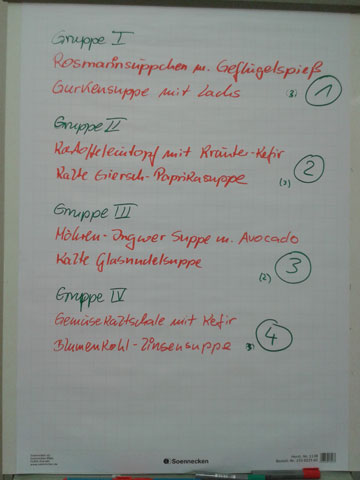 Gruppe I
Rosmarinsüppchen m. Geflügelspieß
Gurkensuppe mit Lachs (3) 1
Gruppe II
Kartoffeleintopf mit Kräuter-Kefir
Kalte Giersch-Paprikasuppe (3) 2
Gruppe III
Möhren-Ingwer Suppe m. Avocado
Kalte Glasnudelsuppe (2) 3
Gruppe IV
Gemüsekaltschale mit Kefir
Blumenkohl-Linsensuppe 4
Soennecken